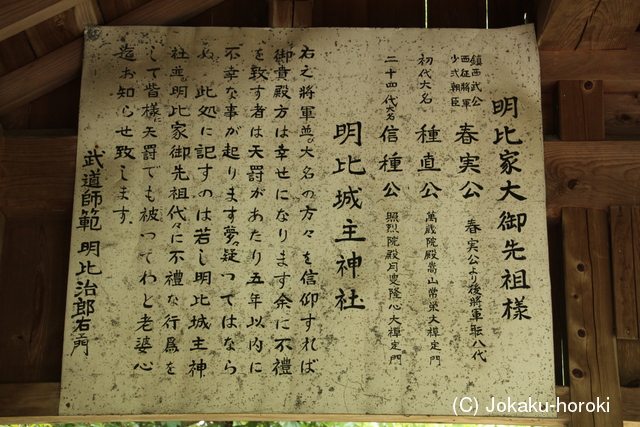 明比家大御先祖様
鎮西武公
西征将軍
少弍朝臣
春実公 春実公より後将軍職八代
初代大名 種直公 萬歳院殿嵩山常栄大禅定門
二十四代大名 信種公 照烈院殿月叟隆心大禅定門
明比城主神社
右之将軍並ニ大名の方々を信仰すれば
御貴殿方は幸せになります余に不禮
を致す者は天罰があたり五年以内に
不幸な事が起ります夢々疑つてはなら
ぬ 此処に記すのは若し明比城主神
社並ニ明比家御先祖代々に不禮な行為を
して皆様ニ天罰でも被つてわと老婆心
迄お知らせ致します.
武道師範 明比治郎右ェ門
(C) Jokaku-horoki